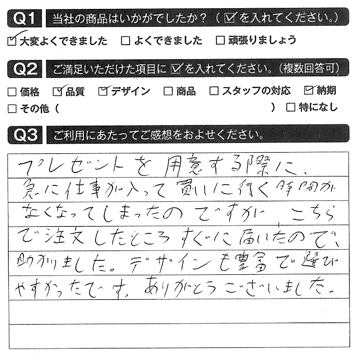 Q1 当社の商品はいかがでしたか？（☑を入れてください。）
☑大変よくできました □よくできました □頑張りましょう
Q2 ご満足いただけた項目に☑を入れてください。（複数回答可）
□価格 ☑品質 ☑デザイン □商品 □スタッフの対応 ☑納期
□その他（　　　）□特になし
Q3 ご利用にあたってご感想をおよせください。
プレゼントを用意する際に、
急に仕事が入って買いに行く時間が
なくなってしまったのですが、こちら
で注文したところすぐに届いたので、
助かりました。デザインも豊富で選び
やすかったです。ありがとうございました。